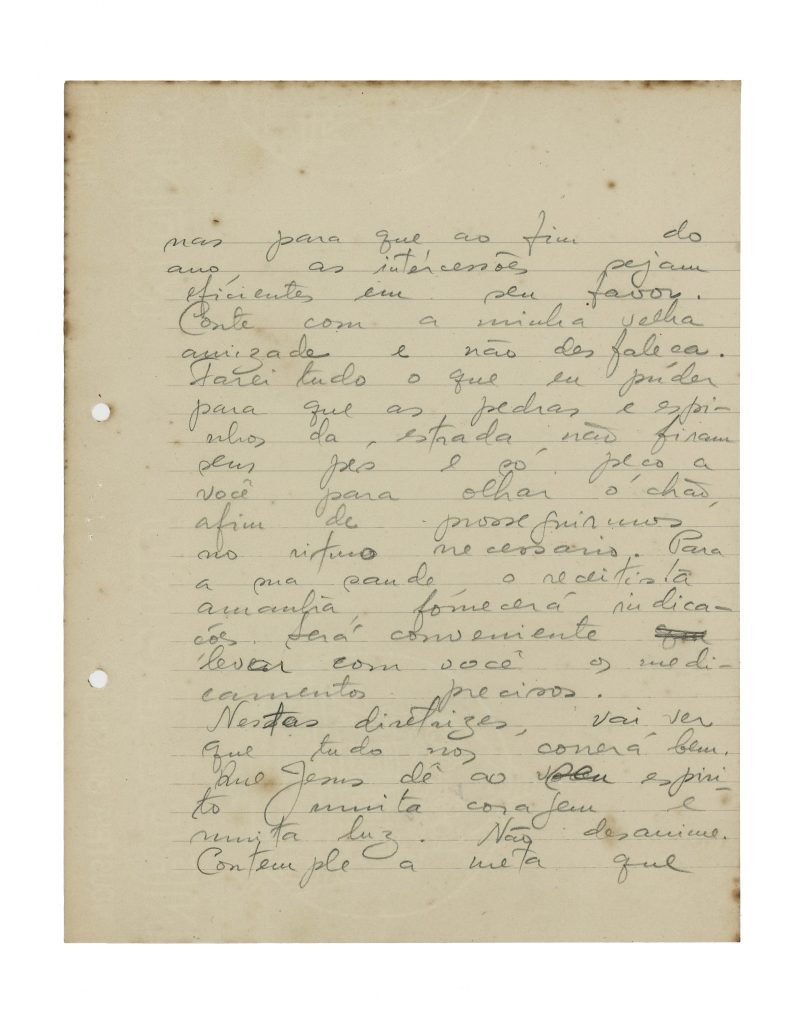 nas para que ao fim do
ano, as intercessões sejam
eficientes em seu favor.
Conte com a minha velha
amizade e não desfaleça.
Farei tudo o que eu pudér
para que as pedras e espi-
nhos da estrada não firam
seus pés e só peço a
você para olhar o chão,
afim de prosseguirmos
no ritmo necessario. Para
a sua saude o receitista
amanhã, fornecerá indica-
ções. Será conveniente
levar com você os medi-
camentos precisos.
Nestas diretrizes, vai ver
que tudo nos correrá bem.
Que Jesus dê ao seu espiri-
to muita coragem e
muita luz. Não desanime.
Contemple a meta que